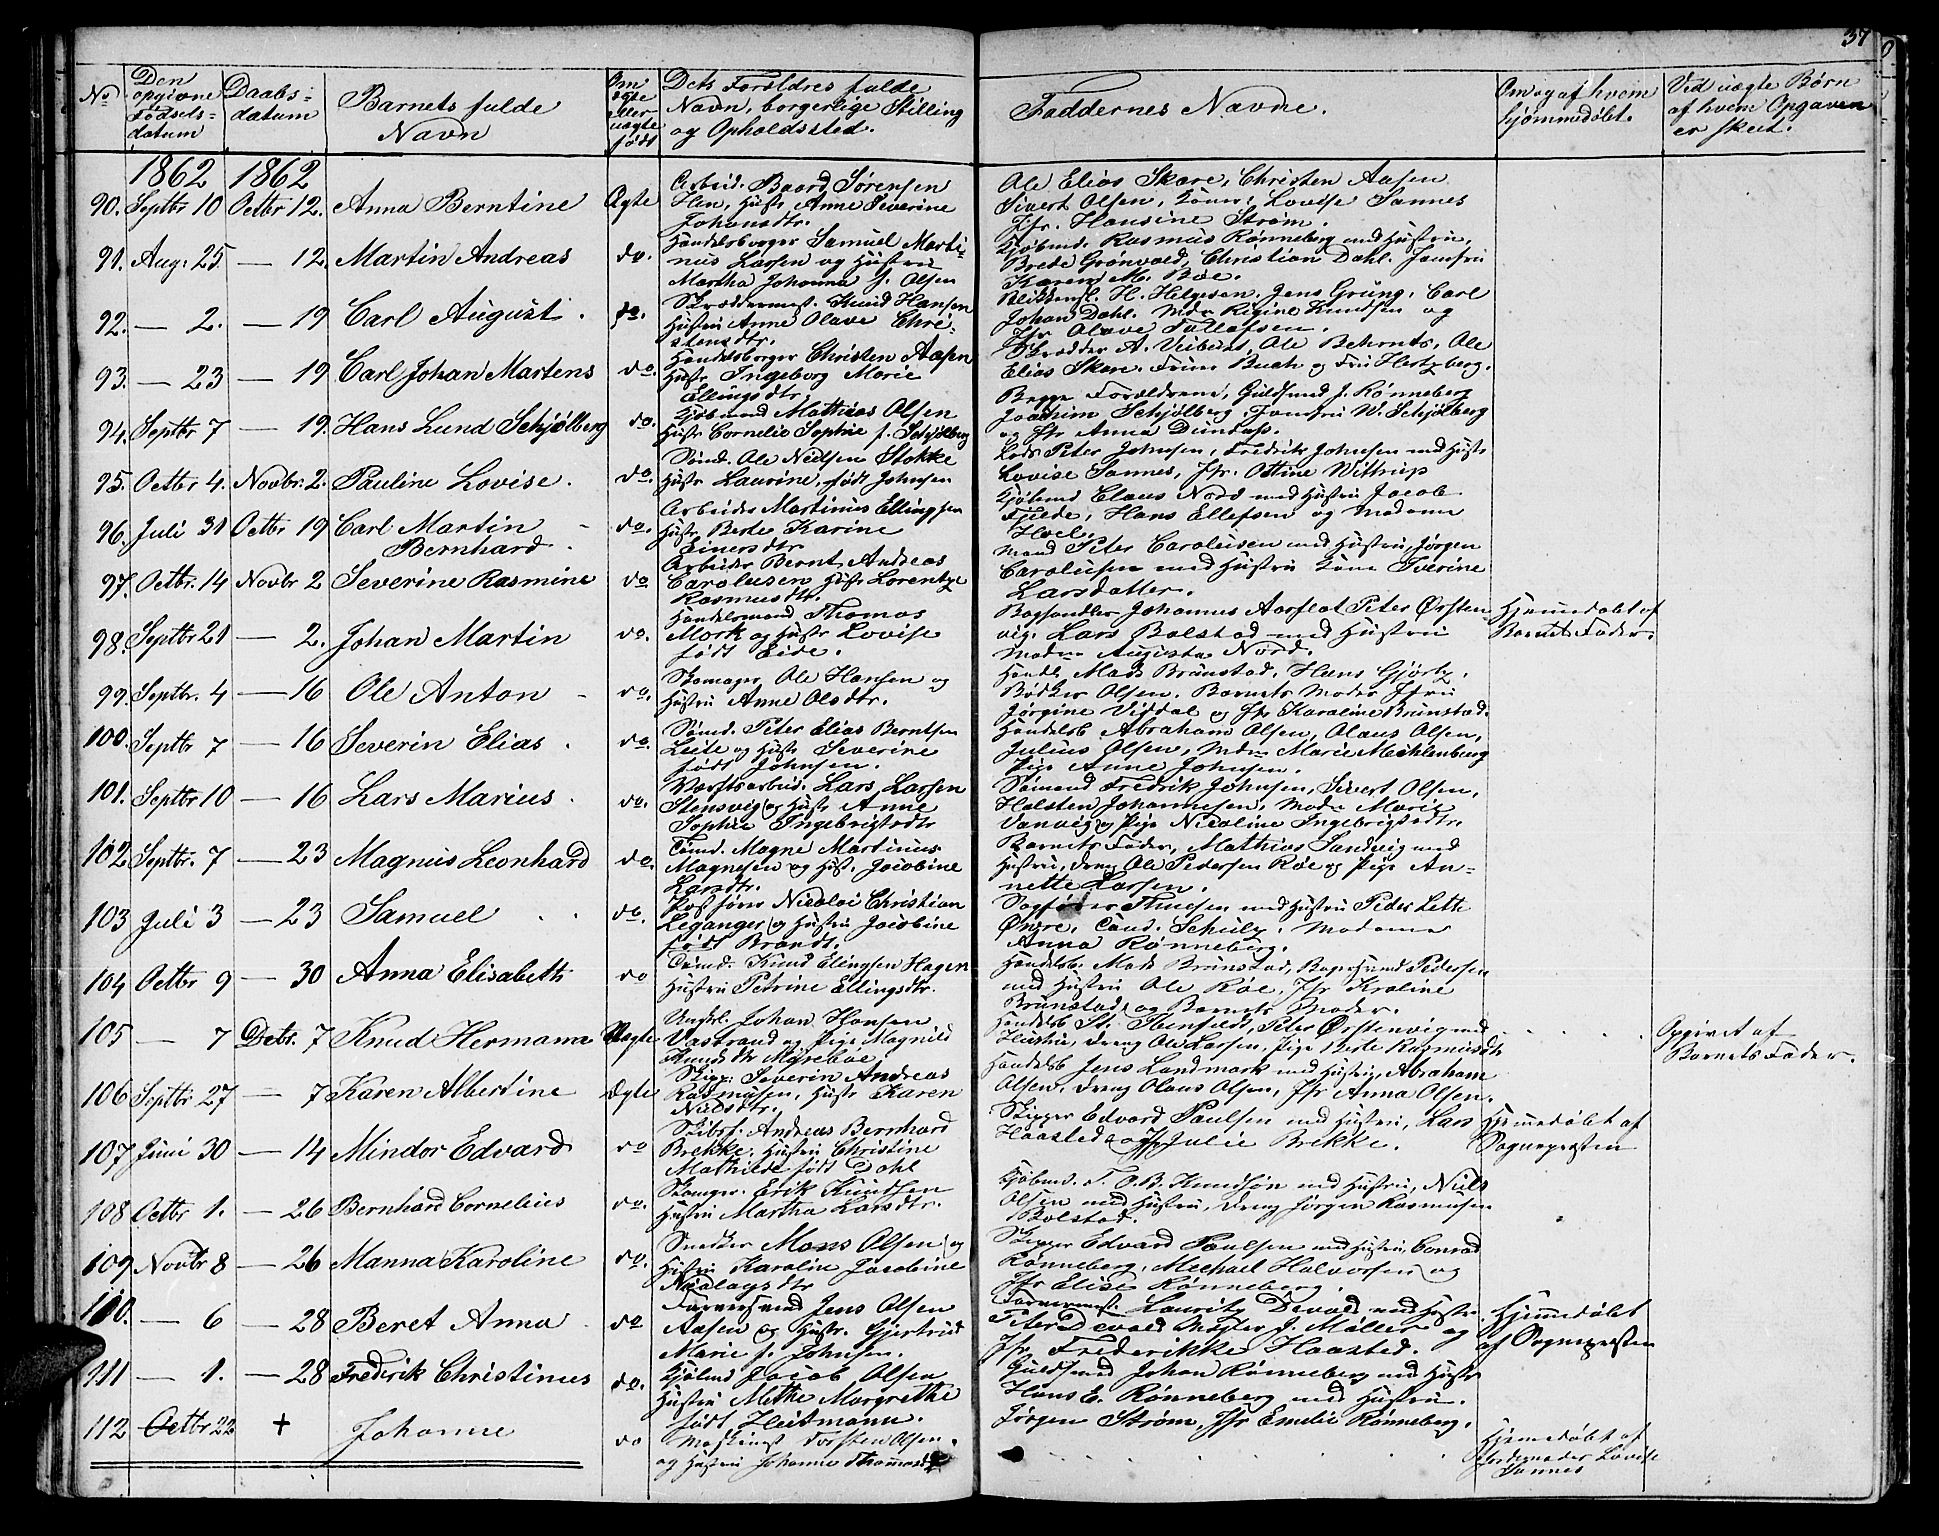 37
No
Den opgivne Fødsels-datum
Daabs-datum
Barnets fulde Navn
Om ægte eller uægte født
Dets Forældres fulde Navn, borgerlige Stilling og Opholdssted.
Faddernes Navne.
Om og af hvem hjemmedøbt.
Ved uægte Børn af hvem Opgaven er skeet.
1862 1862
90. Septbr 10 Octbr 12. Anna Berntine Ægte
Arbeid. Baard Sørensen
Hen, Hustr Anne Severine
Johansdtr.
Ole Elias Skare, Christen Aasen
Sivert Olsen, Lovise Sannes
Jfr. Hansine Strøm.
91. Aug. 25. — 12. Martin Andreas do.
Handelsborger Samuel Marti-
nus Larsen og Hustru
Martha Johanna f. Olsen
Kjøbmd. Rasmus Rønneberg med Hustru,
Brede Grønvold, Christian Dahl. Jomfru
Karen M. Bøe.
92. — 2. — 19 Carl August. do.
Skræddermest. Knud Hansen
Hustru Anne Olave Chri-
stensdtr.
Blikkensl. H. Helgesen. Jens Grung. Carl
Johan Dahl. Mdm Regine Knudsen og
Jfr Olave Tollefsen.
93. — 23 — 19 Carl Johan Martens do.
Handelsborger Christen Aasen
Hustr Ingeborg Marie
Ellingsdtr.
Skrædder A. Veibust, Ole Behrnts, Ole
Elias Skare. Fruer Buch og Fru Hertzberg.
94. Septbr 7 — 19. Hans Lund Schjølberg do.
Kjøbmand Mathias Olsen
Hustr Cornelie Sophie f. Schjølberg
Begge Forældrene, Guldsmed J. Rønneberg
Joachim Schjølberg, Jomfru W. Schjølberg
og Jfr Anna Dundas.
95. Octbr 4. Novbr. 2. Pauline Lovise. do
Sømd. Ole Nielsen Stokke
Hustr Laurine, født Johnsen
Lods Peter Johnsen, Fredrik Johnsen med Hustr
Lovise Sannes, Jfr. Ottine Wittrup
96. Juli 31 Octbr 19 Carl Martin Bernhard. do.
Arbeider Martinus Ellingsen
Hustr Berte Karine
Einersdtr
Kjøbmd Claus Nord med Hustru Jacob
Fjelde, Hans Ellefsen og Madame
Hoel.
97. Octbr. 14 Novbr 2 Severine Rasmine do
Arbeider Bernt Andreas
Carolusen Hustr Lorentze
Rasmusdtr.
Mand Peter Carolusen med Hustru, Jørgen
Carolusen med Hustru Kone Sverine
Larsdatter.
98. Septbr 21 — 2. Johan Martin do.
Handelsmand Thomas
Mork og Hustr Lovise
født Eide.
Boghandler Johannes Aarflot Peter Ørsten-
vig. Lars Bolstad med Hustru
Madm Augusta Nord.
Hjemmedøbt af
Barnets Fader.
99. Septbr. 4 — 16 Ole Anton do.
Skomager Ole Hansen og
Hustru Anne Olsdtr.
Handl. Mads Brunstad, Hans Gjørtz.
Bødker Olsen. Barnets Moder Jfru
Jørgine Viddal og Jfr Karoline Brunstad.
100. Septbr 7 — 16 Severin Elias. do
Sømd. Peter Elias Berntsen
Leite og Hustr Severine
født Johnsen.
Handelsb Abraham Olsen, Olaus Olsen,
Julius Olsen, Mdm Marie Mechlenburg
Pige Anne Johnsen.
101. Septbr 10 — 16 Lars Marius. do.
Værftsarbeid. Lars Larsen
Stensvig og Hustr Anne
Sophie Ingebrigtsdtr
Sømand Fredrik Johnsen, Sivert Olsen,
Holsten Johannesen, Madm Marie
Vanvig og Pige Nicoline Ingebrigtsdtr.
102 Septbr. 7 — 23 Magnus Leonhard do.
Tømd. Magne Martinus
Magnesen og Hust. Jacobine
Larsdtr.
Barnets Fader, Mathias Sandvig med
Hustru, Dreng Ole Pedersen Røe og Pige An-
nette Larsen.
103 Juli 3 — 23 Samuel do.
Postfører Nicolai Christian
Leganger og Hustru Jacobine
født Brandt.
Sagfører Thuesen med Hustru Peder Leth
Øwre, Cand. Schulz. Madame
Anna Rønneberg.
104 Octbr 9 — 30 Anna Elisabeth do
Tømd. Knud Elingsen Hagen
Hustru Petrine Ellingsdtr.
Handelsb. Mads Brunstad, Bogh Pedersen
med Hustru Ole Røe, Jfr Kroline
Brunstad og Barnets Moder.
105 — 7 Decbr. 7 Knud Hermana Uægte
Ungkl. Johan Hansen
Vastrand og Pige Magnild
Knudsdtr Myrebøe
Handelsb St. Stenfeldt, Peter Ørstenvig med
Hustru, Dreng Ole Larsen, Pige Berte Rasmusdtr
Opgivet af
Barnets Fader.
106 Septbr 27 — 7 Karen Albertine Ægte
Skipp. Severin Andreas
Rasmusen, Hustr Karen
Nielsdtr.
Handelsb Jens Landmark med Hustru, Abraham
Olsen, Dreng Olaus Olsen, Jfr Anna Olsen.
107 Juni 30 — 14 Mindor Edvard do
Skibsf. Andreas Bernhard
Brekke. Hustru Christine
Mathilde født Dahl
Skipper Edvard Paulsen med Hustru, Lars
Haasted og Jfr Julie Brekke.
Hjemmedøbt af
Sognepresten
108 Octbr 1. — 26 Bernhard Cornelius do.
Skomager. Erik Knudsen
Hustru Martha Larsdtr.
Kjøbmd. T. O. B. Knudsøn med Hustru, Niels
Olsen med Hustru, Dreng Jørgen Rasmusen
Bolstad.
109 Novbr 8 — 26 Manna Karoline do.
Snedker Mons Olsen og
Hustru Karoline Jacobine
Nicolaysdtr
Skipper Edvard Paulsen med Hustru, Conrad
Rønneberg, Mechael Halvorsen og
Jfr Elise Rønneberg.
110. — 6 — 28 Beret Anna do
Farversvend Jens Olsen
Aasen og Hustr. Gjertrud
Marie f. Johnsen.
Farvermest. Lauritz Devold med Hustr
Peter Devold Mester J. Møller og
Jfr Frederikke Haasted.
Hjemmedøbt
af Sognepresten
111 — 1. — 28 Fredrik Christinus do.
Kjøbmd Jacob Olsen
Hustru Methe Margrethe
født Heitmann.
Guldsmed Johan Rønneberg med Hustr
Hans E. Rønneberg med Hustru.
Jørgen Strøm, Jfr Emelie Rønneberg.
112 Octbr 22 + Johanne do
Maskinist Torsten Olsen.
og Hustru Johanne Thomasdtr
Hjemmedøbt af
Jordemoder Lovise
Sannes